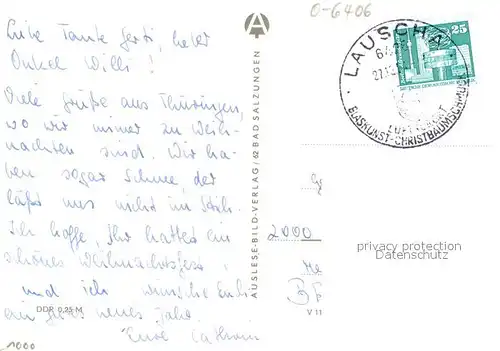 Liebe Tante Gerti, lieber
Onkel Willi!
Viele Grüße aus Thüringen,
wo wir immer zu Weih-
nachten sind. Wir ha-
ben sogar Schnee, der
läßt uns nicht im Stich.
Ich hoffe, Ihr hattet ein
schönes Weihnachtsfest
und ich wünsche Euch
ein gutes neues Jahr.
Eure Cathrin
DDR 0,25 M
1000
AUSLESE-BILD-VERLAG/62 BAD SALZUNGEN
A
0-6406
LAUSCHA
25
GLASKUNST-CHRISTBAUMSCHMUCK
LUFTKURORT
2000
privacy protection
Datenschutz
V 11